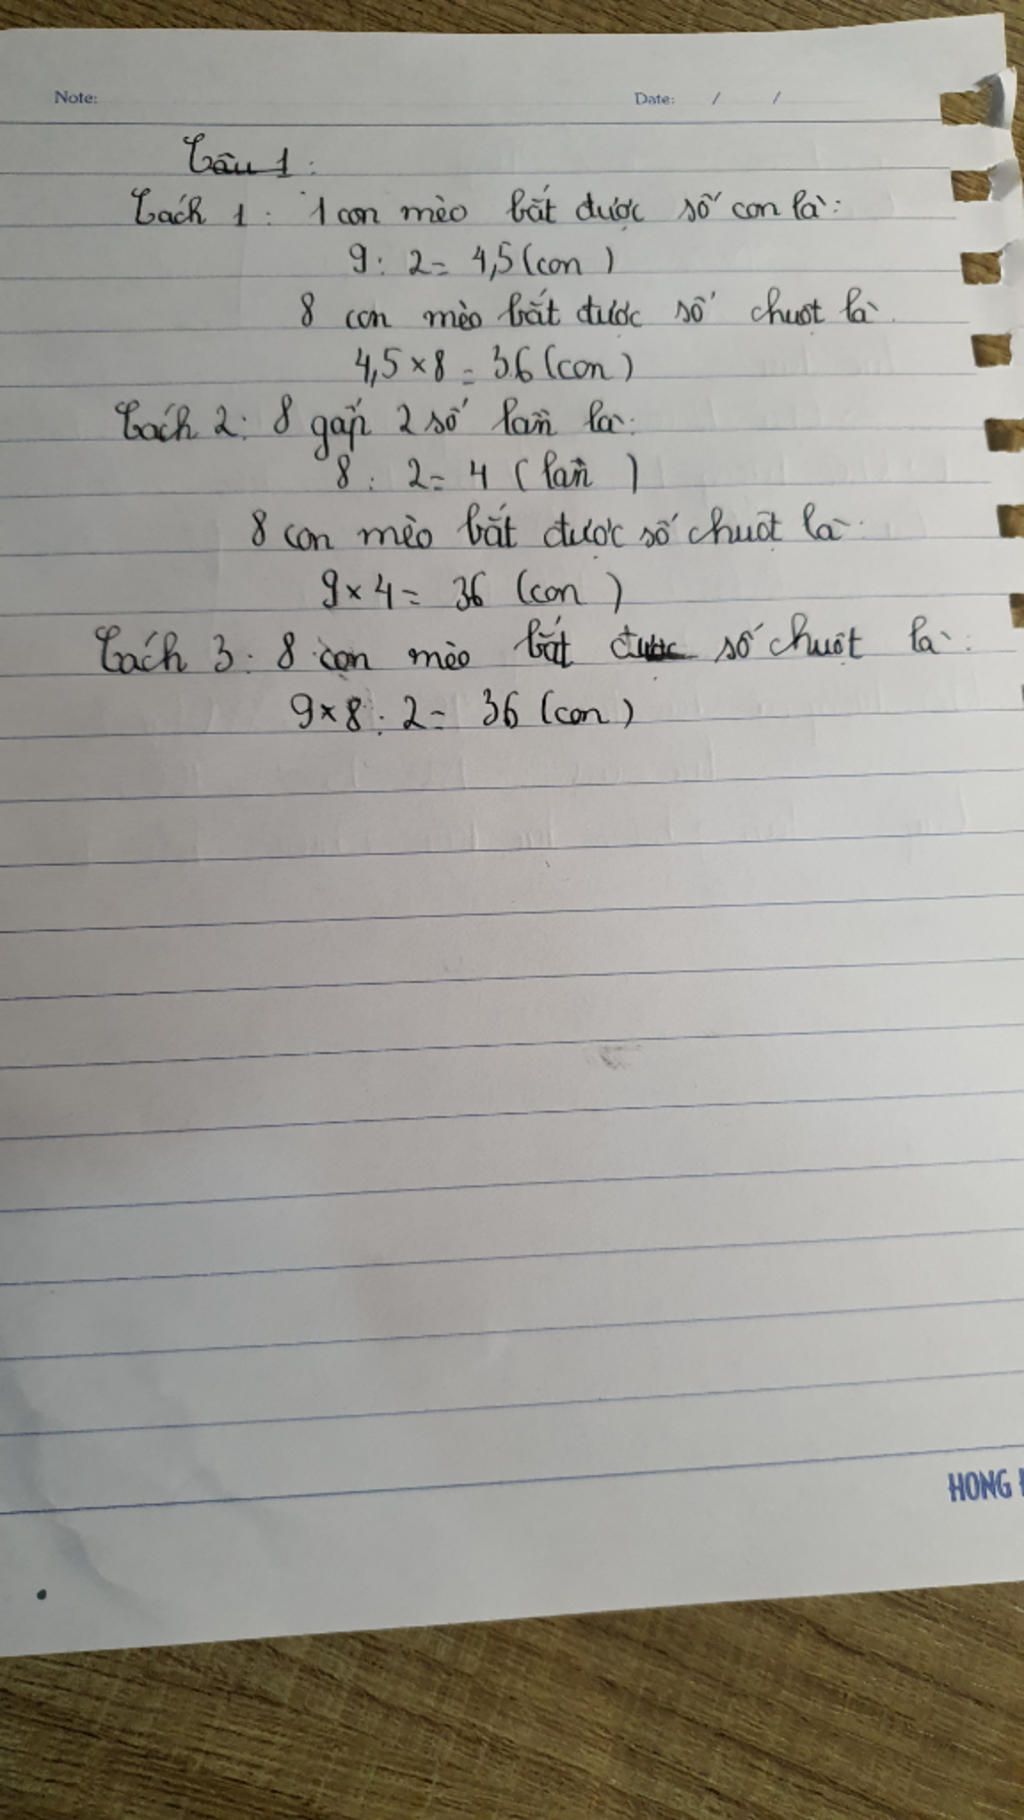 Note:
Date: / /
Câu 1:
Cách 1: 1 con mèo bắt được số con là:
9 : 2 = 4,5 (con)
8 con mèo bắt được số chuột là
4,5 × 8 = 36 (con)
Cách 2: 8 gấp 2 số lần là:
8 : 2 = 4 (lần)
8 con mèo bắt được số chuột là:
9 × 4 = 36 (con)
Cách 3: 8 con mèo bắt được số chuột là:
9 × 8 : 2 = 36 (con)
HONG